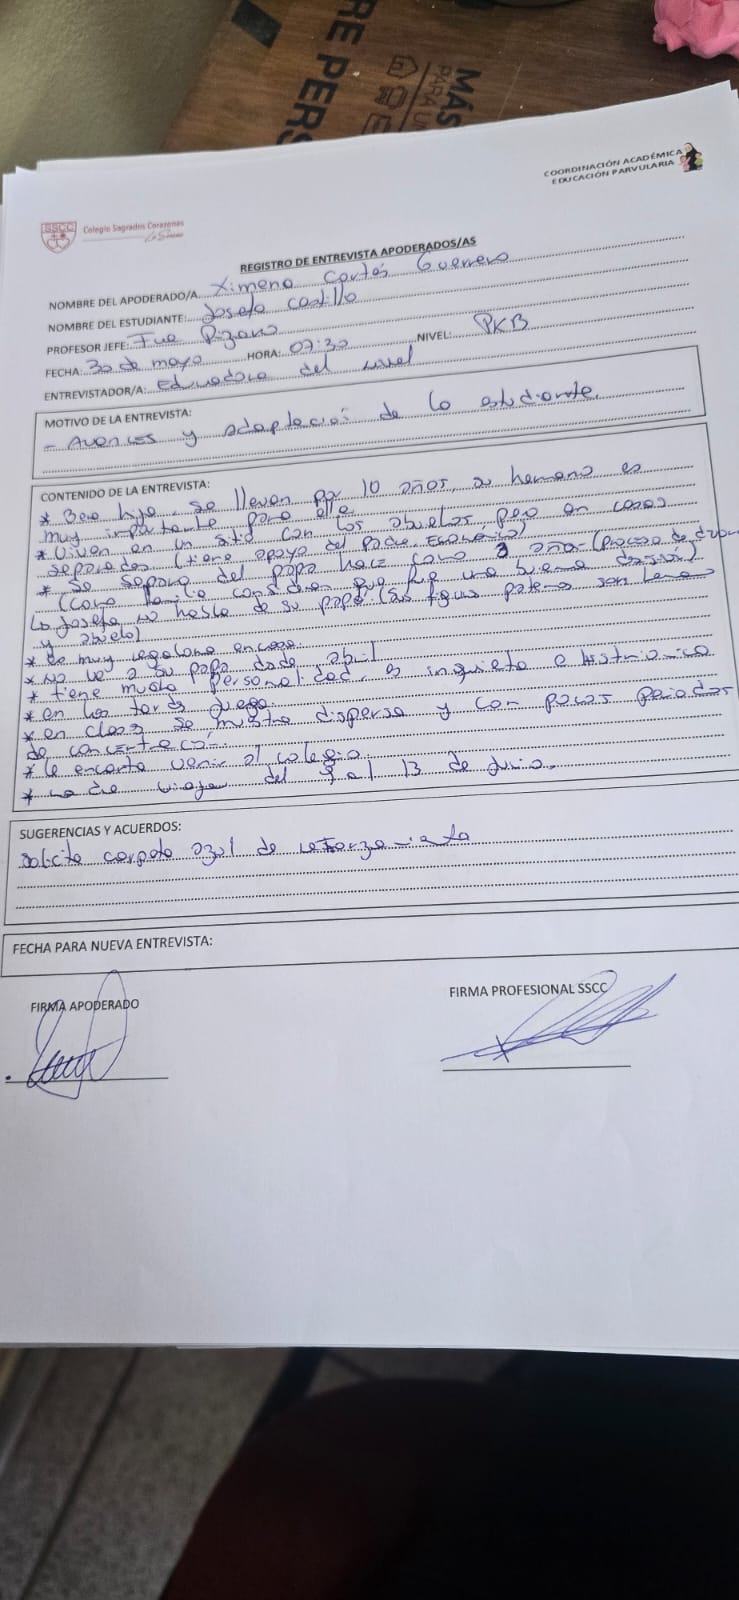 RE PERS
MÁS
PARA U
COORDINACIÓN ACADÉMICA
EDUCACIÓN PARVULARIA
SSCC
Colegio Sagrados Corazones
La Serena
REGISTRO DE ENTREVISTA APODERADOS/AS
NOMBRE DEL APODERADO/A Ximena Cortés Guerrero
NOMBRE DEL ESTUDIANTE: Josefa Castillo
PROFESOR JEFE: Pizarro
FECHA: 30 de mayo HORA: 07:30 NIVEL: PKB
ENTREVISTADOR/A: Educadora del nivel
MOTIVO DE LA ENTREVISTA:
- Avances y adaptación de la estudiante.
CONTENIDO DE LA ENTREVISTA:
* hijo, se llevan por 10 años, su hermano es
muy importante para ella
* Viven en un sitio con los abuelos, pero en casas
separadas (tiene apoyo del padre, económico)
* Se separo del papá hace como año (Proceso de
(como familia consideran que fue una buena
La Josefa no habla de su papá. (Sus figuras paternas son
y abuelo)
* Es muy regalona en casa.
* No ve a su papá desde abril
* tiene mucha personalidad, es inquieta e histrionica
* en las tardes juega.
* en clases se muestra dispersa y con pocos periodos
de concentración.
* le encanta venir al colegio.
* viaja del 9 al 13 de Junio.
SUGERENCIAS Y ACUERDOS:
Solicito carpeta azul de reforzamiento
FECHA PARA NUEVA ENTREVISTA:
FIRMA APODERADO
FIRMA PROFESIONAL SSCC